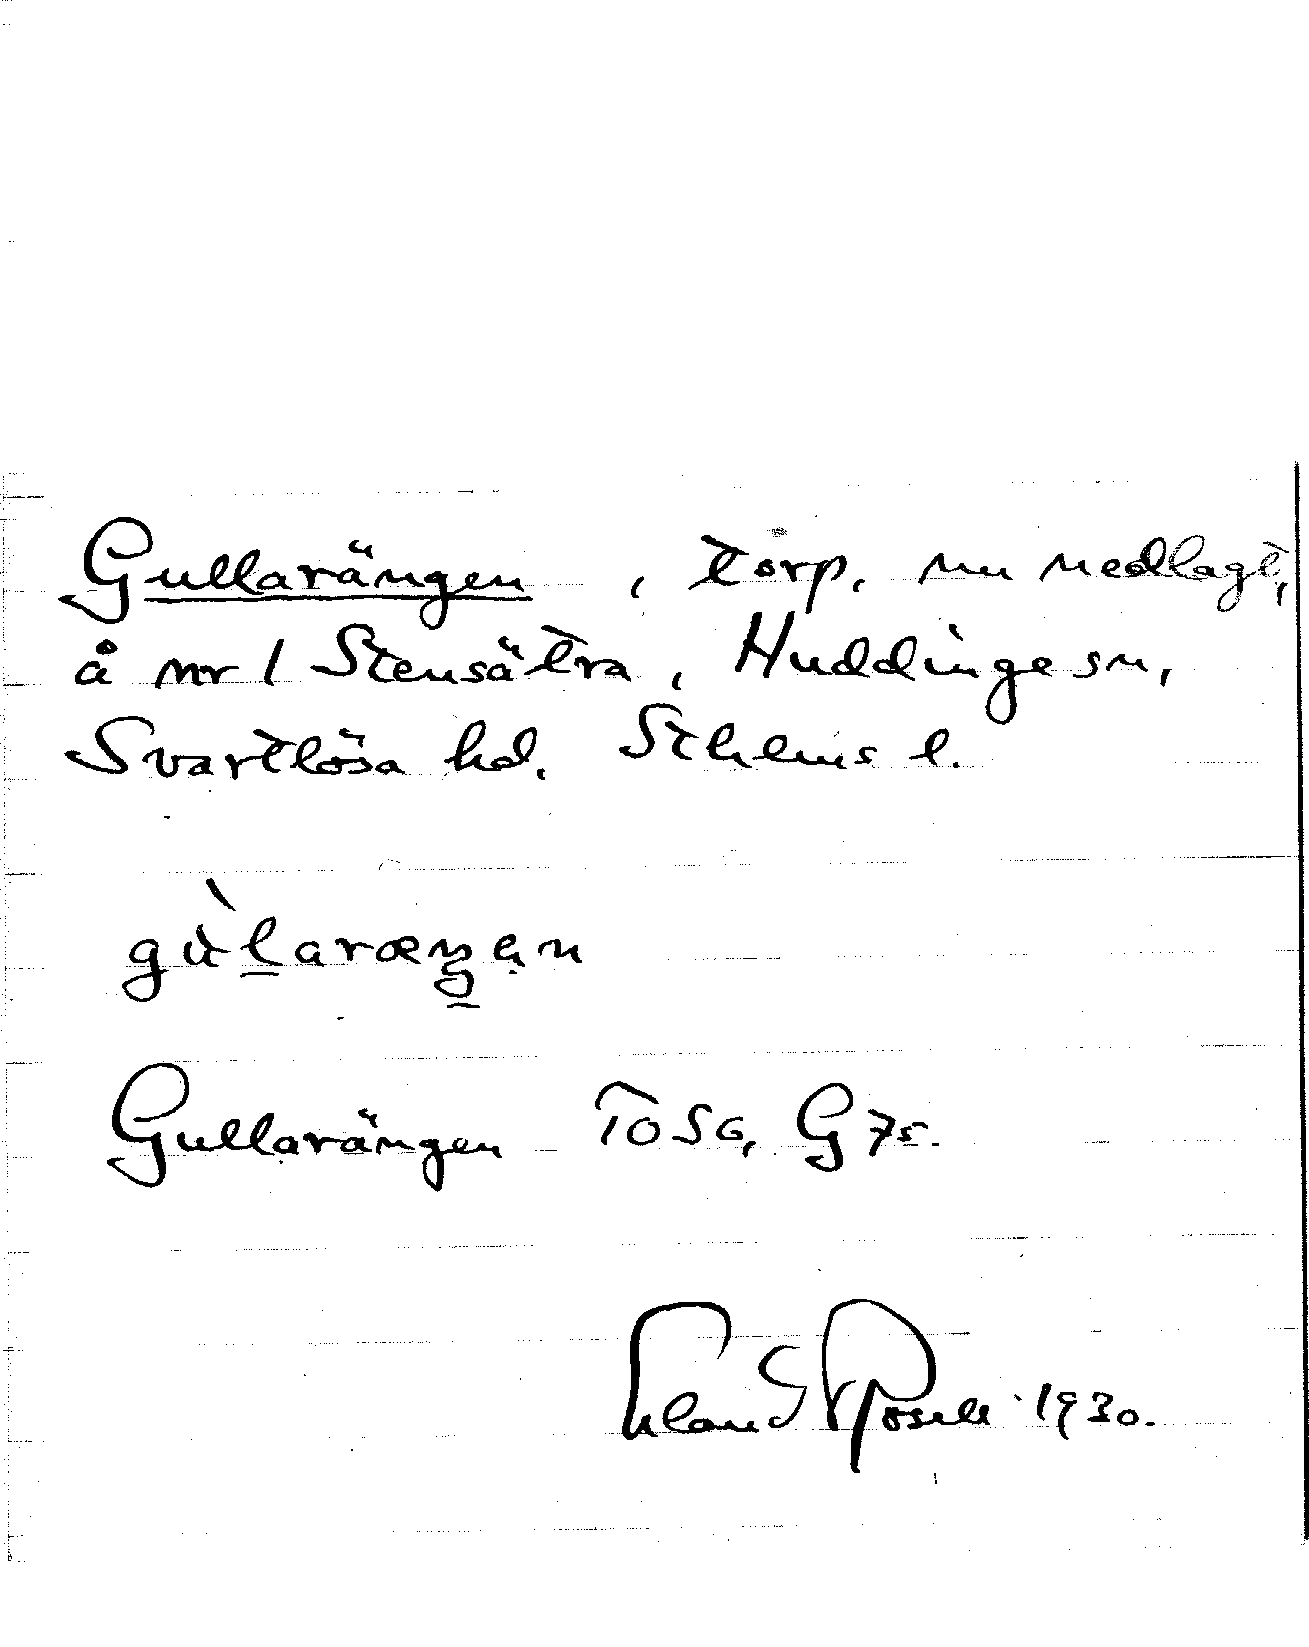 Gullarängen, torp, nu nedlagt,
å nr 1 Stensätra, Huddinge sn,
Svartlösa hd. Sthlms l.
gùlaræŋən
Gullarängen TOSG, G 75.
Erland Rosell 1930.